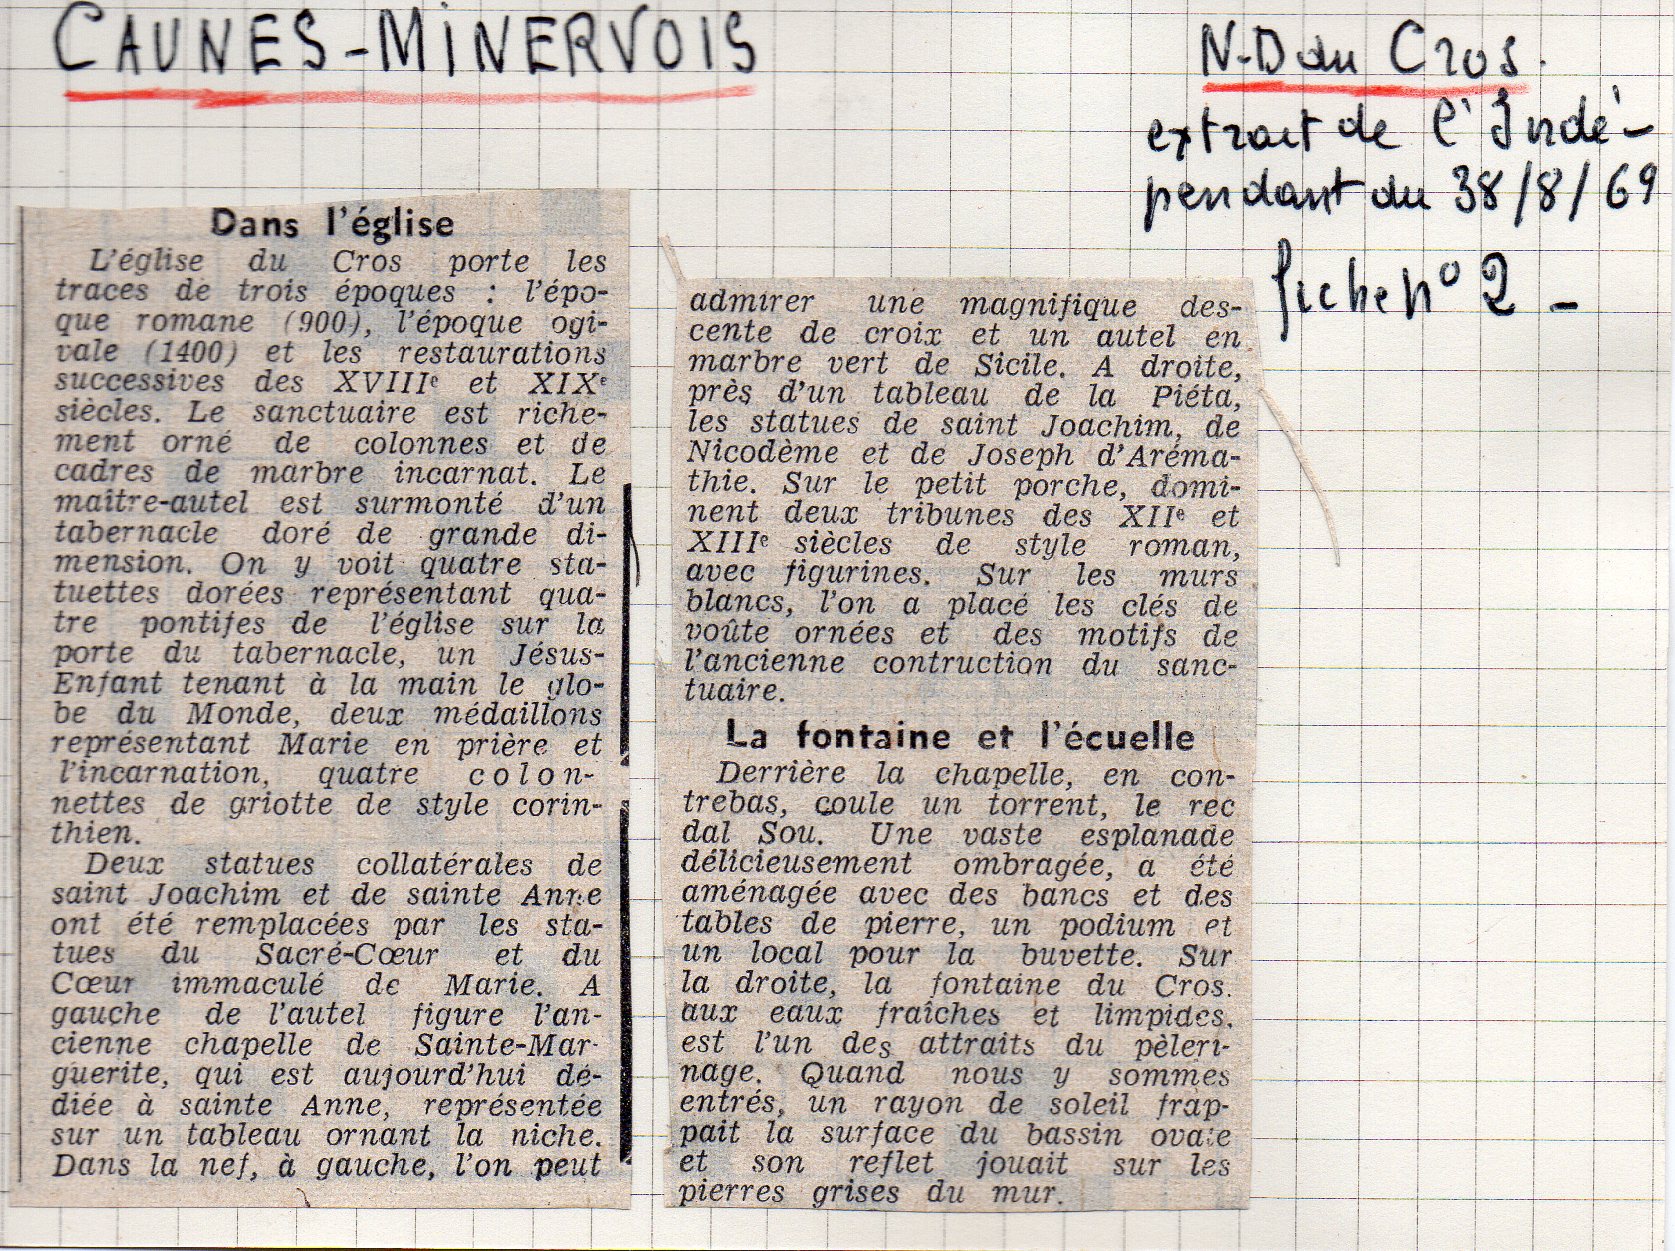 CAUNES-MINERVOIS
N-D du Cros.
extrait de l'Indé-
pendant du 38/8/69
fiche n° 2 -
Dans l'église
L'église du Cros porte les
traces de trois époques : l'épo-
que romane (900), l'époque ogi-
vale (1400) et les restaurations
successives des XVIIIe et XIXe
siècles. Le sanctuaire est riche-
ment orné de colonnes et de
cadres de marbre incarnat. Le
maître-autel est surmonté d'un
tabernacle doré de grande di-
mension. On y voit quatre sta-
tuettes dorées représentant qua-
tre pontifes de l'église sur la
porte du tabernacle, un Jésus-
Enfant tenant à la main le glo-
be du Monde, deux médaillons
représentant Marie en prière et
l'incarnation, quatre colon-
nettes de griotte de style corin-
thien.
Deux statues collatérales de
saint Joachim et de sainte Anne
ont été remplacées par les sta-
tues du Sacré-Cœur et du
Cœur immaculé de Marie. A
gauche de l'autel figure l'an-
cienne chapelle de Sainte-Mar-
guerite, qui est aujourd'hui dé-
diée à sainte Anne, représentée
sur un tableau ornant la niche.
Dans la nef, à gauche, l'on peut
admirer une magnifique des-
cente de croix et un autel en
marbre vert de Sicile. A droite,
près d'un tableau de la Piéta,
les statues de saint Joachim, de
Nicodème et de Joseph d'Aréma-
thie. Sur le petit porche, domi-
nent deux tribunes des XIIe et
XIIIe siècles de style roman,
avec figurines. Sur les murs
blancs, l'on a placé les clés de
voûte ornées et des motifs de
l'ancienne contruction du sanc-
tuaire.
La fontaine et l'écuelle
Derrière la chapelle, en con-
trebas, coule un torrent, le rec
dal Sou. Une vaste esplanade
délicieusement ombragée, a été
aménagée avec des bancs et des
tables de pierre, un podium et
un local pour la buvette. Sur
la droite, la fontaine du Cros,
aux eaux fraîches et limpides,
est l'un des attraits du pèleri-
nage. Quand nous y sommes
entrés, un rayon de soleil frap-
pait la surface du bassin ovale
et son reflet jouait sur les
pierres grises du mur.